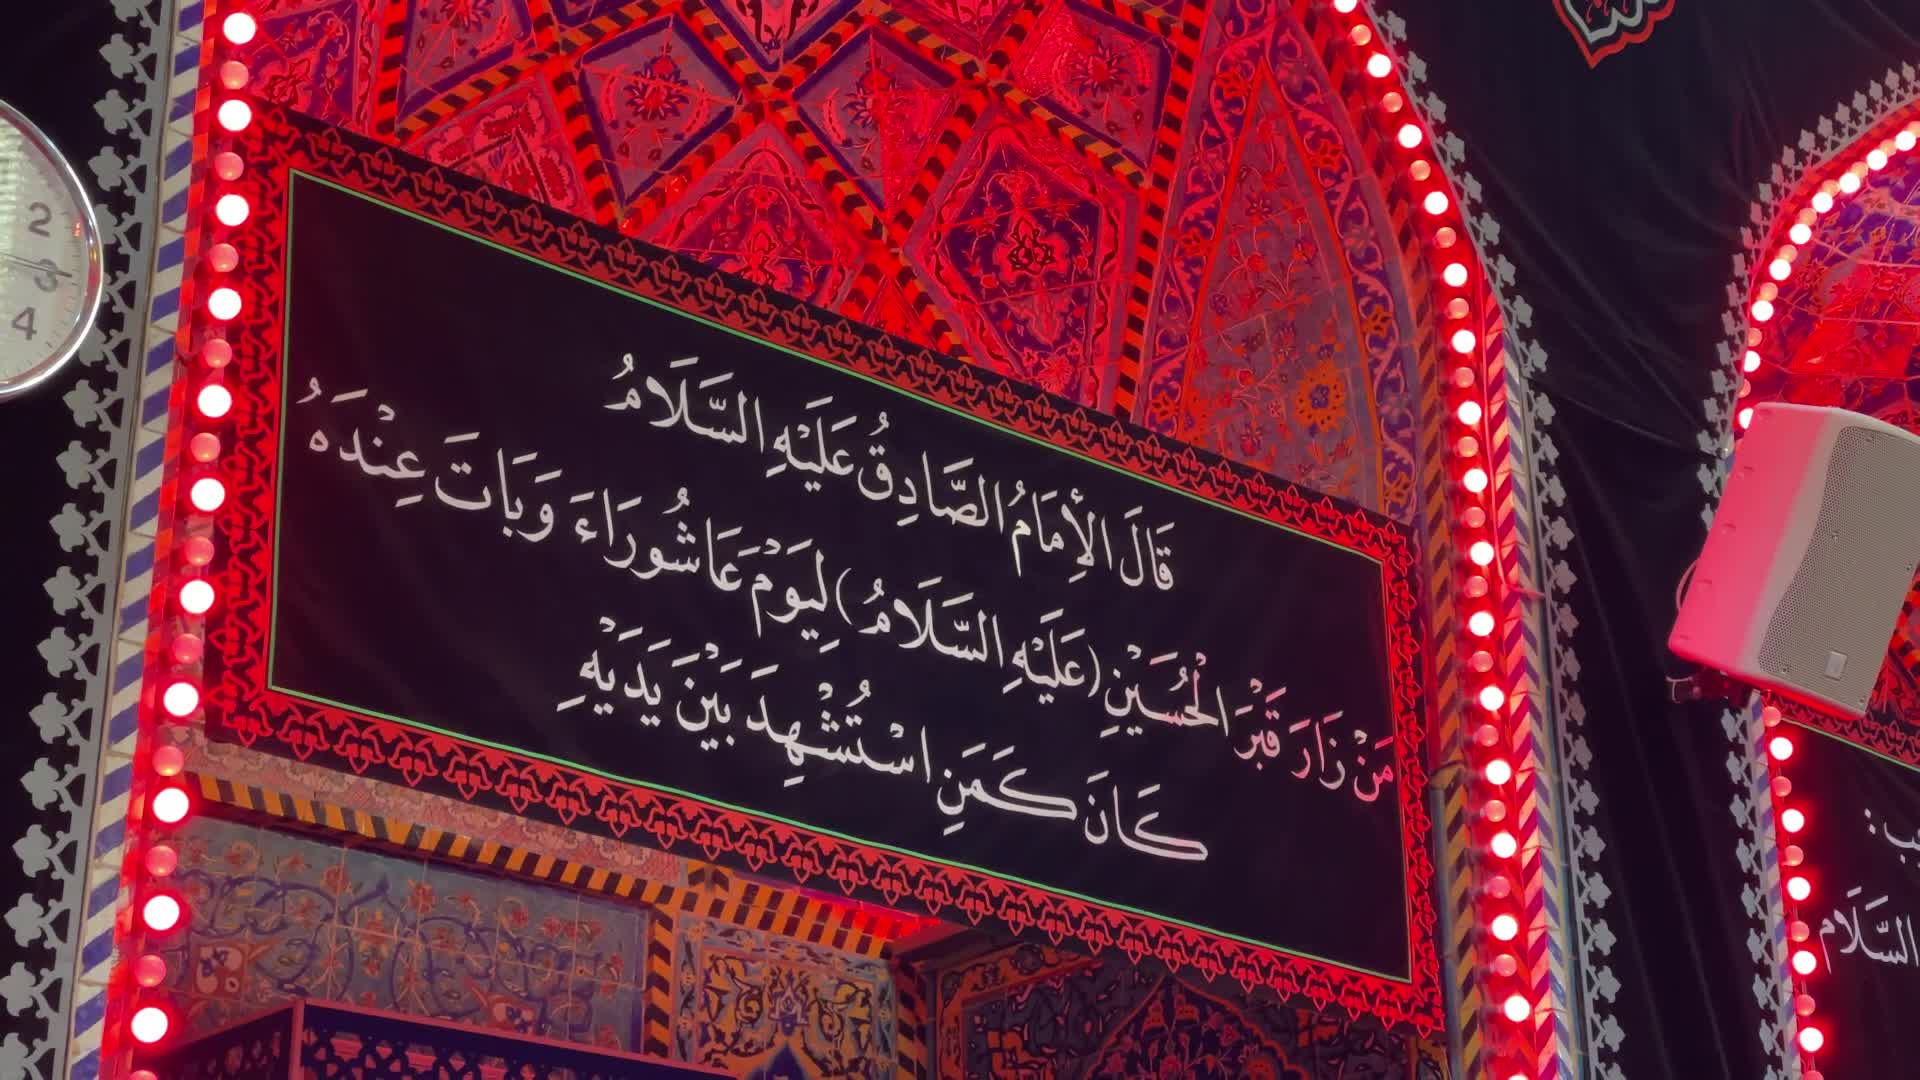 قَالَ الْإِمَامُ الصَّادِقُ عَلَيْهِ السَّلَامُ
مَنْ زَارَ قَبْرَ الْحُسَيْنِ (عَلَيْهِ السَّلَامُ) لِيَوْمَ عَاشُورَاءَ وَبَاتَ عِنْدَهُ
كَانَ كَمَنِ اسْتُشْهِدَ بَيْنَ يَدَيْهِ
2
3
4
السَّلَام